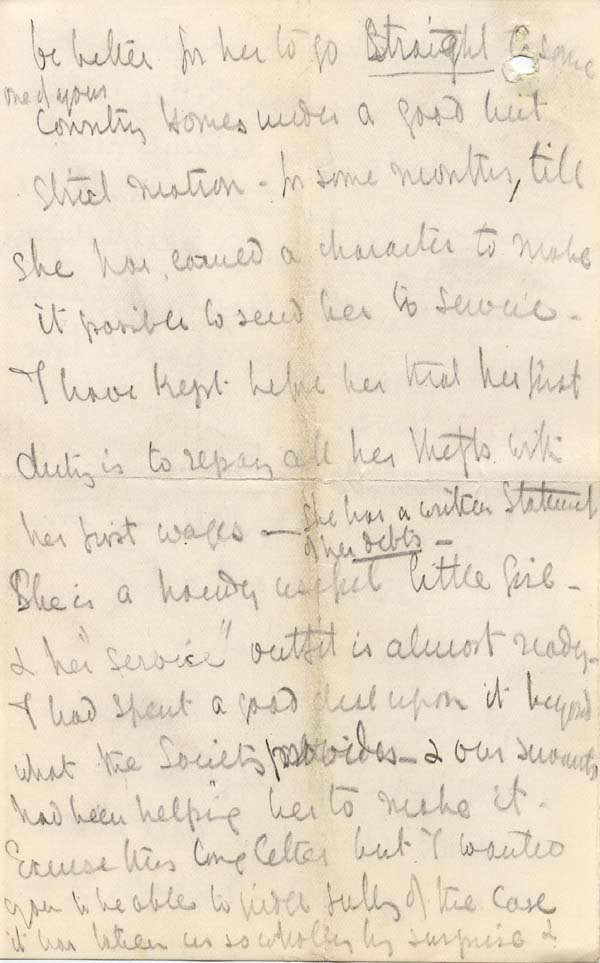 be better for her to go Straight to some
one of your
Country Homes under a good but
strict matron - for some months, till
she has earned a character to make
it possible to send her to service -
I have kept before her that her first
duty is to repay all her thefts with
her first wages - She has a written Statement
of her debts -
She is a handy useful little girl -
& her "service" outfit is almost ready -
I had spent a good deal upon it beyond
what the Society provides - & our servants
had been helping her to make it -
Excuse this long letter but I wanted
you to be able to judge fully of the case
it has taken us so wholly by surprise &